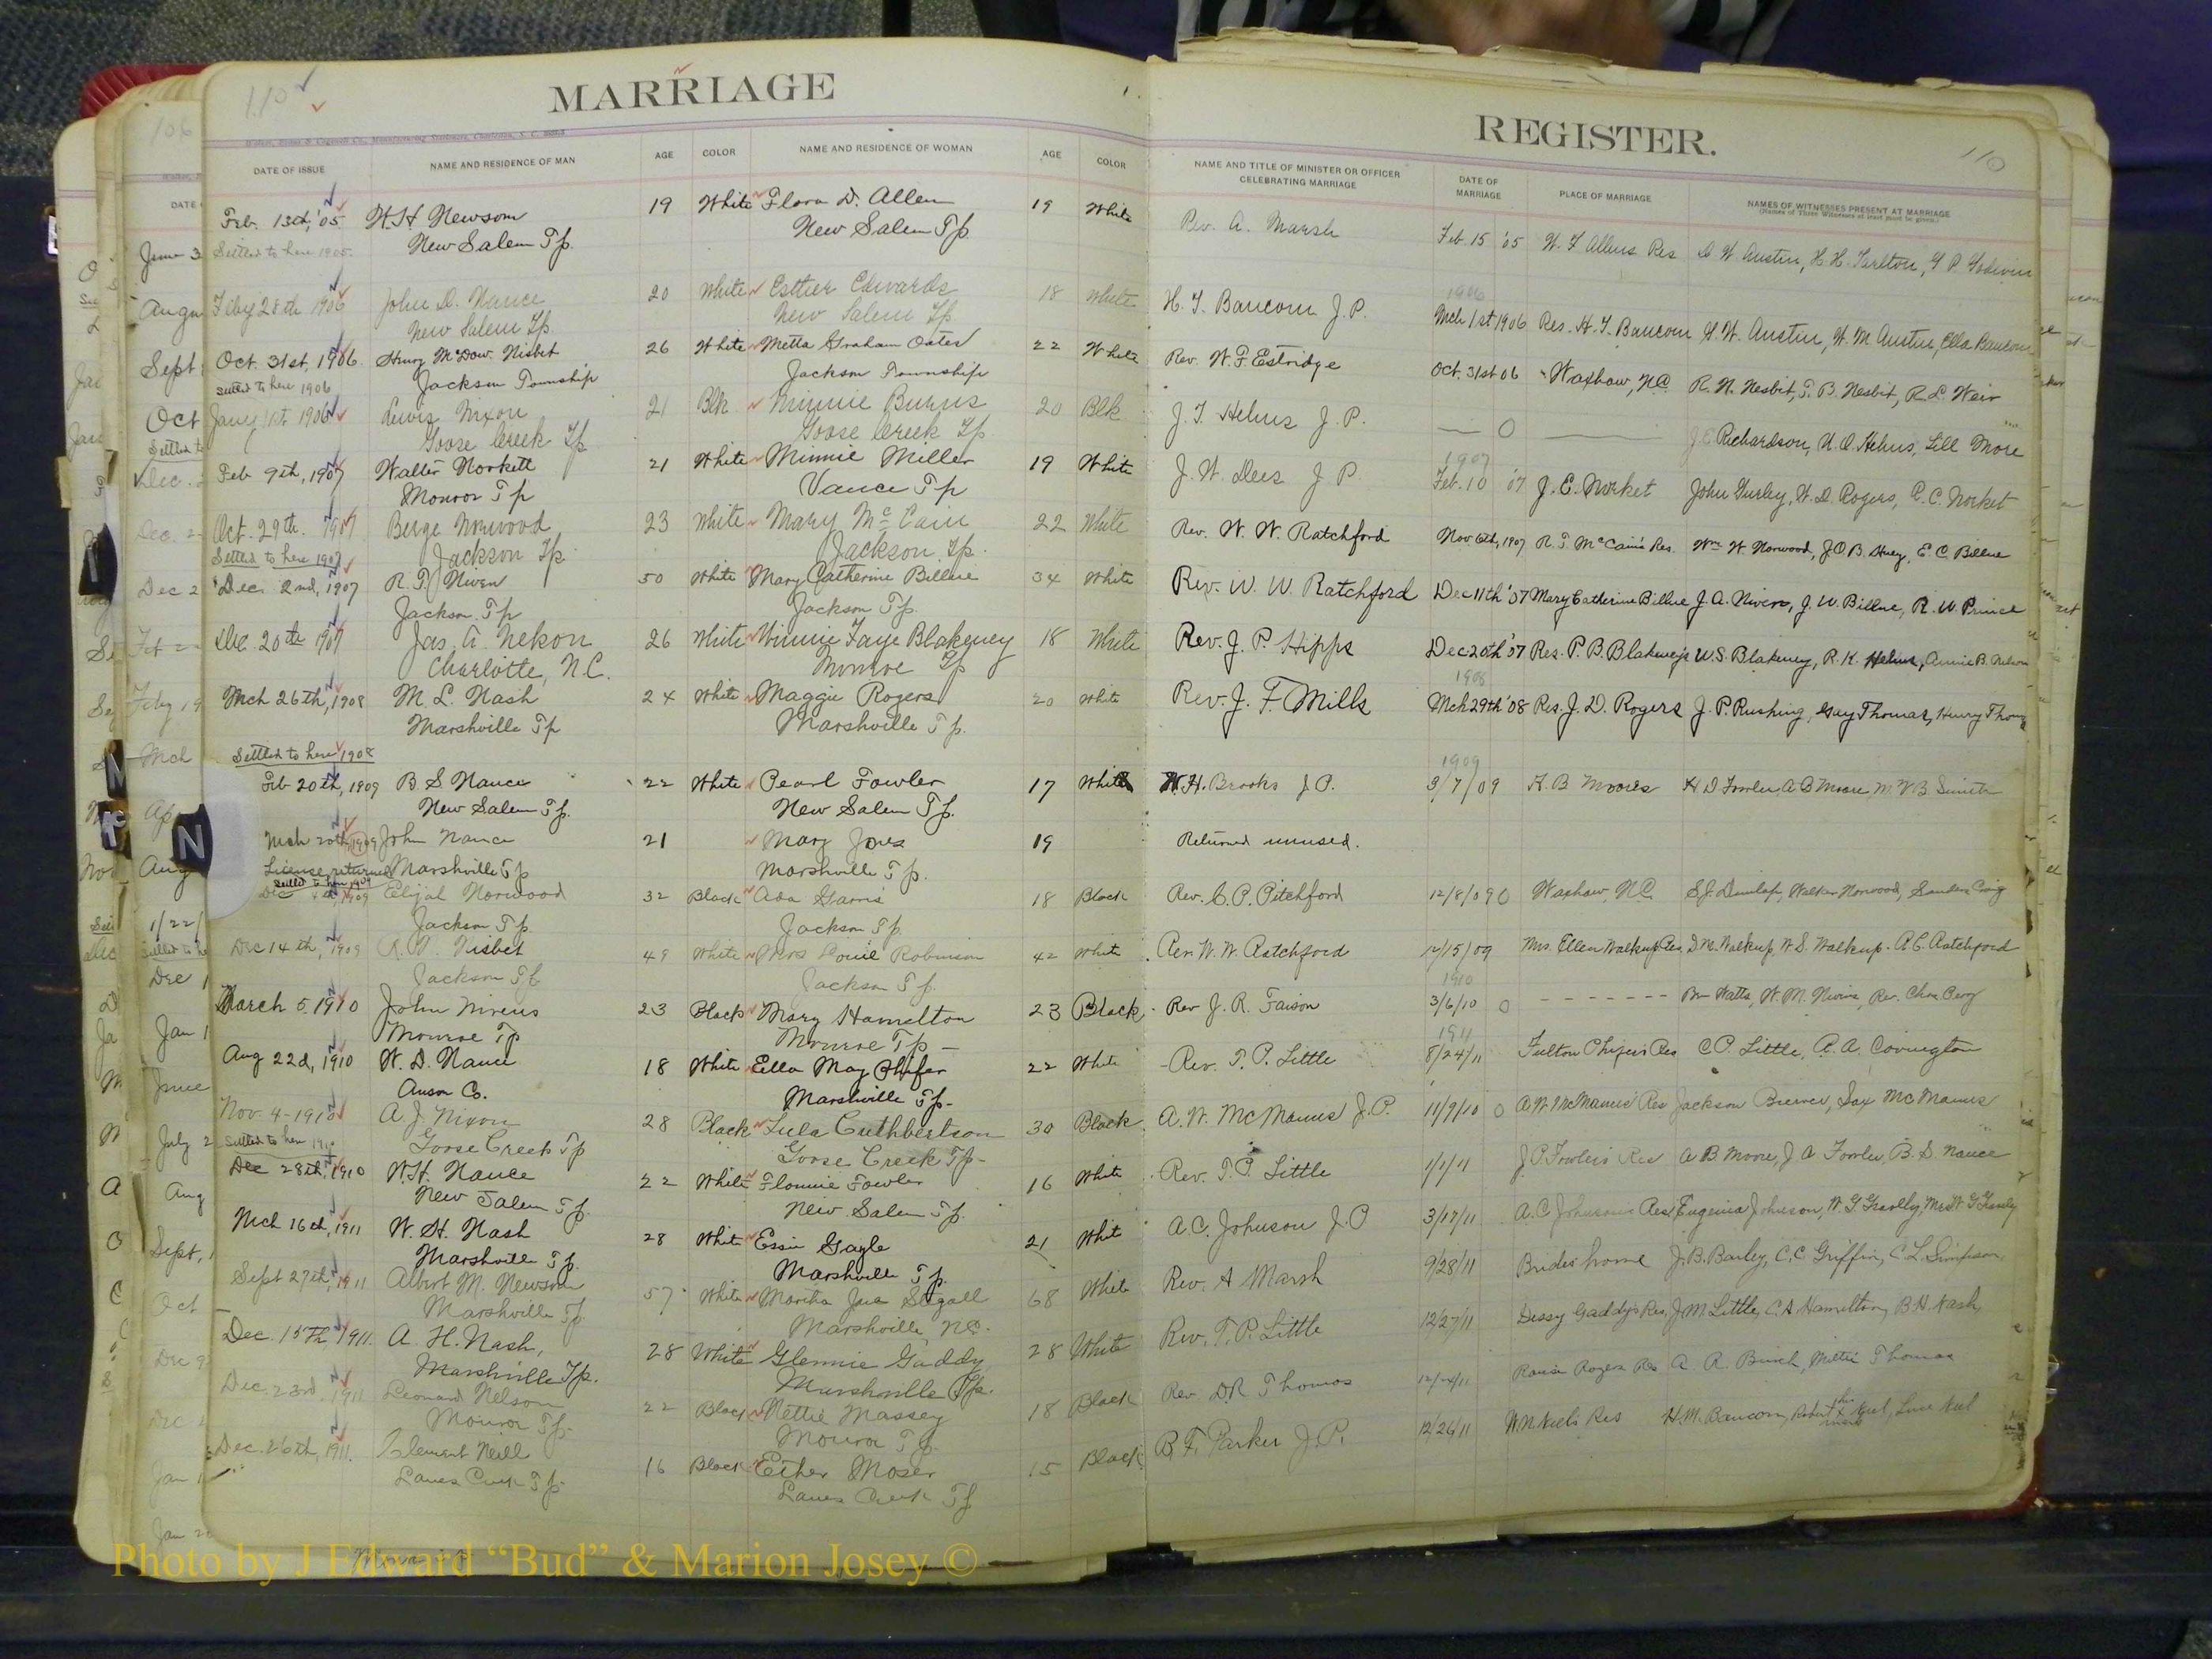 110
MARRIAGE REGISTER.
110
DATE OF ISSUE NAME AND RESIDENCE OF MAN AGE COLOR NAME AND RESIDENCE OF WOMAN AGE COLOR NAME AND TITLE OF MINISTER OR OFFICER CELEBRATING MARRIAGE DATE OF MARRIAGE PLACE OF MARRIAGE NAMES OF WITNESSES PRESENT AT MARRIAGE
(Names of Three Witnesses at least must be given.)
Feb. 13th, '05 W.H Newsom 19 White Flora D. Allen 19 White Rev. A. Marsh Feb. 15 '05 W. F Allens Res D W. Austin, H. H. Tarlton, G P. Godwin
Settled to here 1905. New Salem Tp. New Salem Tp.
1906
Feby 28th 1906 John D. Nance 20 White Esther Edwards 18 White H. T. Baucom J. P. Mch 1st 1906 Res. H. T. Baucom W. Austin, W. M Austin, Ella Baucom
New Salem Tp. New Salem Tp.
Oct. 31st, 1906. Henry McDow. Nisbet 26 White Metta Graham Oates 22 White Rev. W. F. Estridge Oct. 31st 06 Waxhaw, NC R. N. Nesbit, T. B. Nesbit, R. L. Weir
Settled to here 1906 Jackson Township Jackson Township
1st. 1906 Lewis Nixon 21 Blk Minnie Burns 20 Blk J. T. Helms J. P. — O — J. E. Richardson, Helms, Lill More
Goose Creek Tp Goose Creek Tp
1907
Feb 9th, 1907 Walter Norkett 21 White Minnie Miller 19 White J. W. Dees J P. Feb. 10 07 J. E. Norket John Gurley, H. D. Rogers, C. Norket
Monroe Tp Vance Tp
Oct. 29th. 1907 Berge Norwood 23 White Mary McCain 22 White Rev. W. W. Ratchford Nov 6th, 1907 R. T. McCain's Res. Wm W. Norwood, J. O. B. Huey, E. C Billue
Settled to here 1907 Jackson Tp. Jackson Tp.
Dec. 2nd, 1907 R. P. Niven 50 White Mary Catherine Billue 34 White Rev. W. W. Ratchford Dec 11th '07 Mary Catherine Billue J. A. Niven, J. W. Billue, R. W. Prince
Jackson Tp Jackson Tp.
Dec. 20th 1907 Jas. A. Nelson 26 White Winnie Faye Blakeney 18 White Rev. J. P. Hipps Dec 20th '07 Res. P. B. Blakeney's W. S. Blakeney, R. K. Helms, Annie B. Nelson
Charlotte, N.C. Monroe Tp
1908
Mch 26th, 1908 M. L. Nash 24 White Maggie Rogers 20 White Rev. J. F. Mills Mch 29th '08 Res. J. D. Rogers J. P. Rushing, Gay Thomas, Henry Thom
Marshville Tp Marshville Tp.
Settled to here 1908
1909
Feb 20th, 1909 B. S. Nance 22 White Pearl Fowler 17 White W. H. Brooks J. P. 3/7/09 A. B Moores H D Fowler, A B Moore, W B Smith
New Salem Tp. New Salem Tp.
Mch 20th 1909 John Nance 21 Mary Jones 19 Returned unused.
License returned Marshville Tp Marshville Tp.
Settled to here 1909
Dec 4th 1909 Elijah Norwood 32 Black Ada Garris 18 Black Rev. C. P. Pitchford 12/8/09 O Waxhaw, NC S. J. Dunlap, Walker Norwood, Sanders Craig
Jackson Tp. Jackson Tp.
Dec 14th, 1909 Nisbet 49 White Mrs Louie Robinson 42 White Rev. W. W. Ratchford 12/15/09 Mrs. Ellen Walkup Res. D. M. Walkup, W. S. Walkup. A. C. Ratchford
Jackson Tp Jackson Tp.
1910
March 5 1910 John Nivens 23 Black Mary Hamilton 23 Black Rev J. R. Faison 3/6/10 O Watts, W. M. Nivins, Rev. Chas. Perry
Monroe Tp Monroe Tp —
1911
Aug 22d, 1910 W. D. Nance 18 White Ella May Phifer 22 White Rev. T. P. Little 8/24/11 Fulton Phifers Res C. P. Little, R. A. Covington
Anson Co. Marshville Tp.
Nov. 4 - 1910 A J. Nixon 28 Black Lula Cuthbertson 30 Black A. W. McManus J. P. 11/9/10 O A. W. McManus' Res Jackson Brewer, Sax McManus
Settled to here 1910 Goose Creek Tp Goose Creek Tp-
Dec 28th, 1910 W.H. Nance 22 White Flonnie Fowler 16 White Rev. T. P. Little 1/1/11 J. P. Fowlers Res A. B. Moore, J A Fowler, B. S. Nance
New Salem Tp. New Salem Tp.
Mch 16th, 1911 W. H. Nash 28 White Essie Gayle 21 White A.C. Johnson J. P 3/17/11 A. C Johnsons Res. Eugenia Johnson,
Marshville Tp. Marshville Tp.
Sept 27th, 1911 Albert M. Newsom 57 White Martha Jane Stegall 68 White Rev. A Marsh 9/28/11 Brides home J. B. Bailey, C. C Griffin, C. L. Simpson
Marshville Tp. Marshville, NC.
Dec. 15th 1911. A. H. Nash, 28 White Glennie Gaddy 28 White Rev. T. P. Little 12/27/11 Dessy Gaddy's Res. J. M. Little, C. A Hamilton, B. H. Nash
Marshville Tp. Marshville Tp.
Dec. 23rd, 1911 Leonard Nelson 22 Black Nettie Massey 18 Black Rev. D. R Thomas 12/24/11 Rogers Res A. R. Bunch, Mittie Thomas
Monroe Tp. Monroe Tp.
Dec. 26th, 1911. Clement Neill 16 Black Esther Moser 15 Black B. F. Parker J. P. 12/26/11 Res H. M. Baucom, Robert his x mark Neel, Neel
Lanes Creek Tp. Lanes Creek Tp
N
Photo by J Edward “Bud” & Marion Josey ©